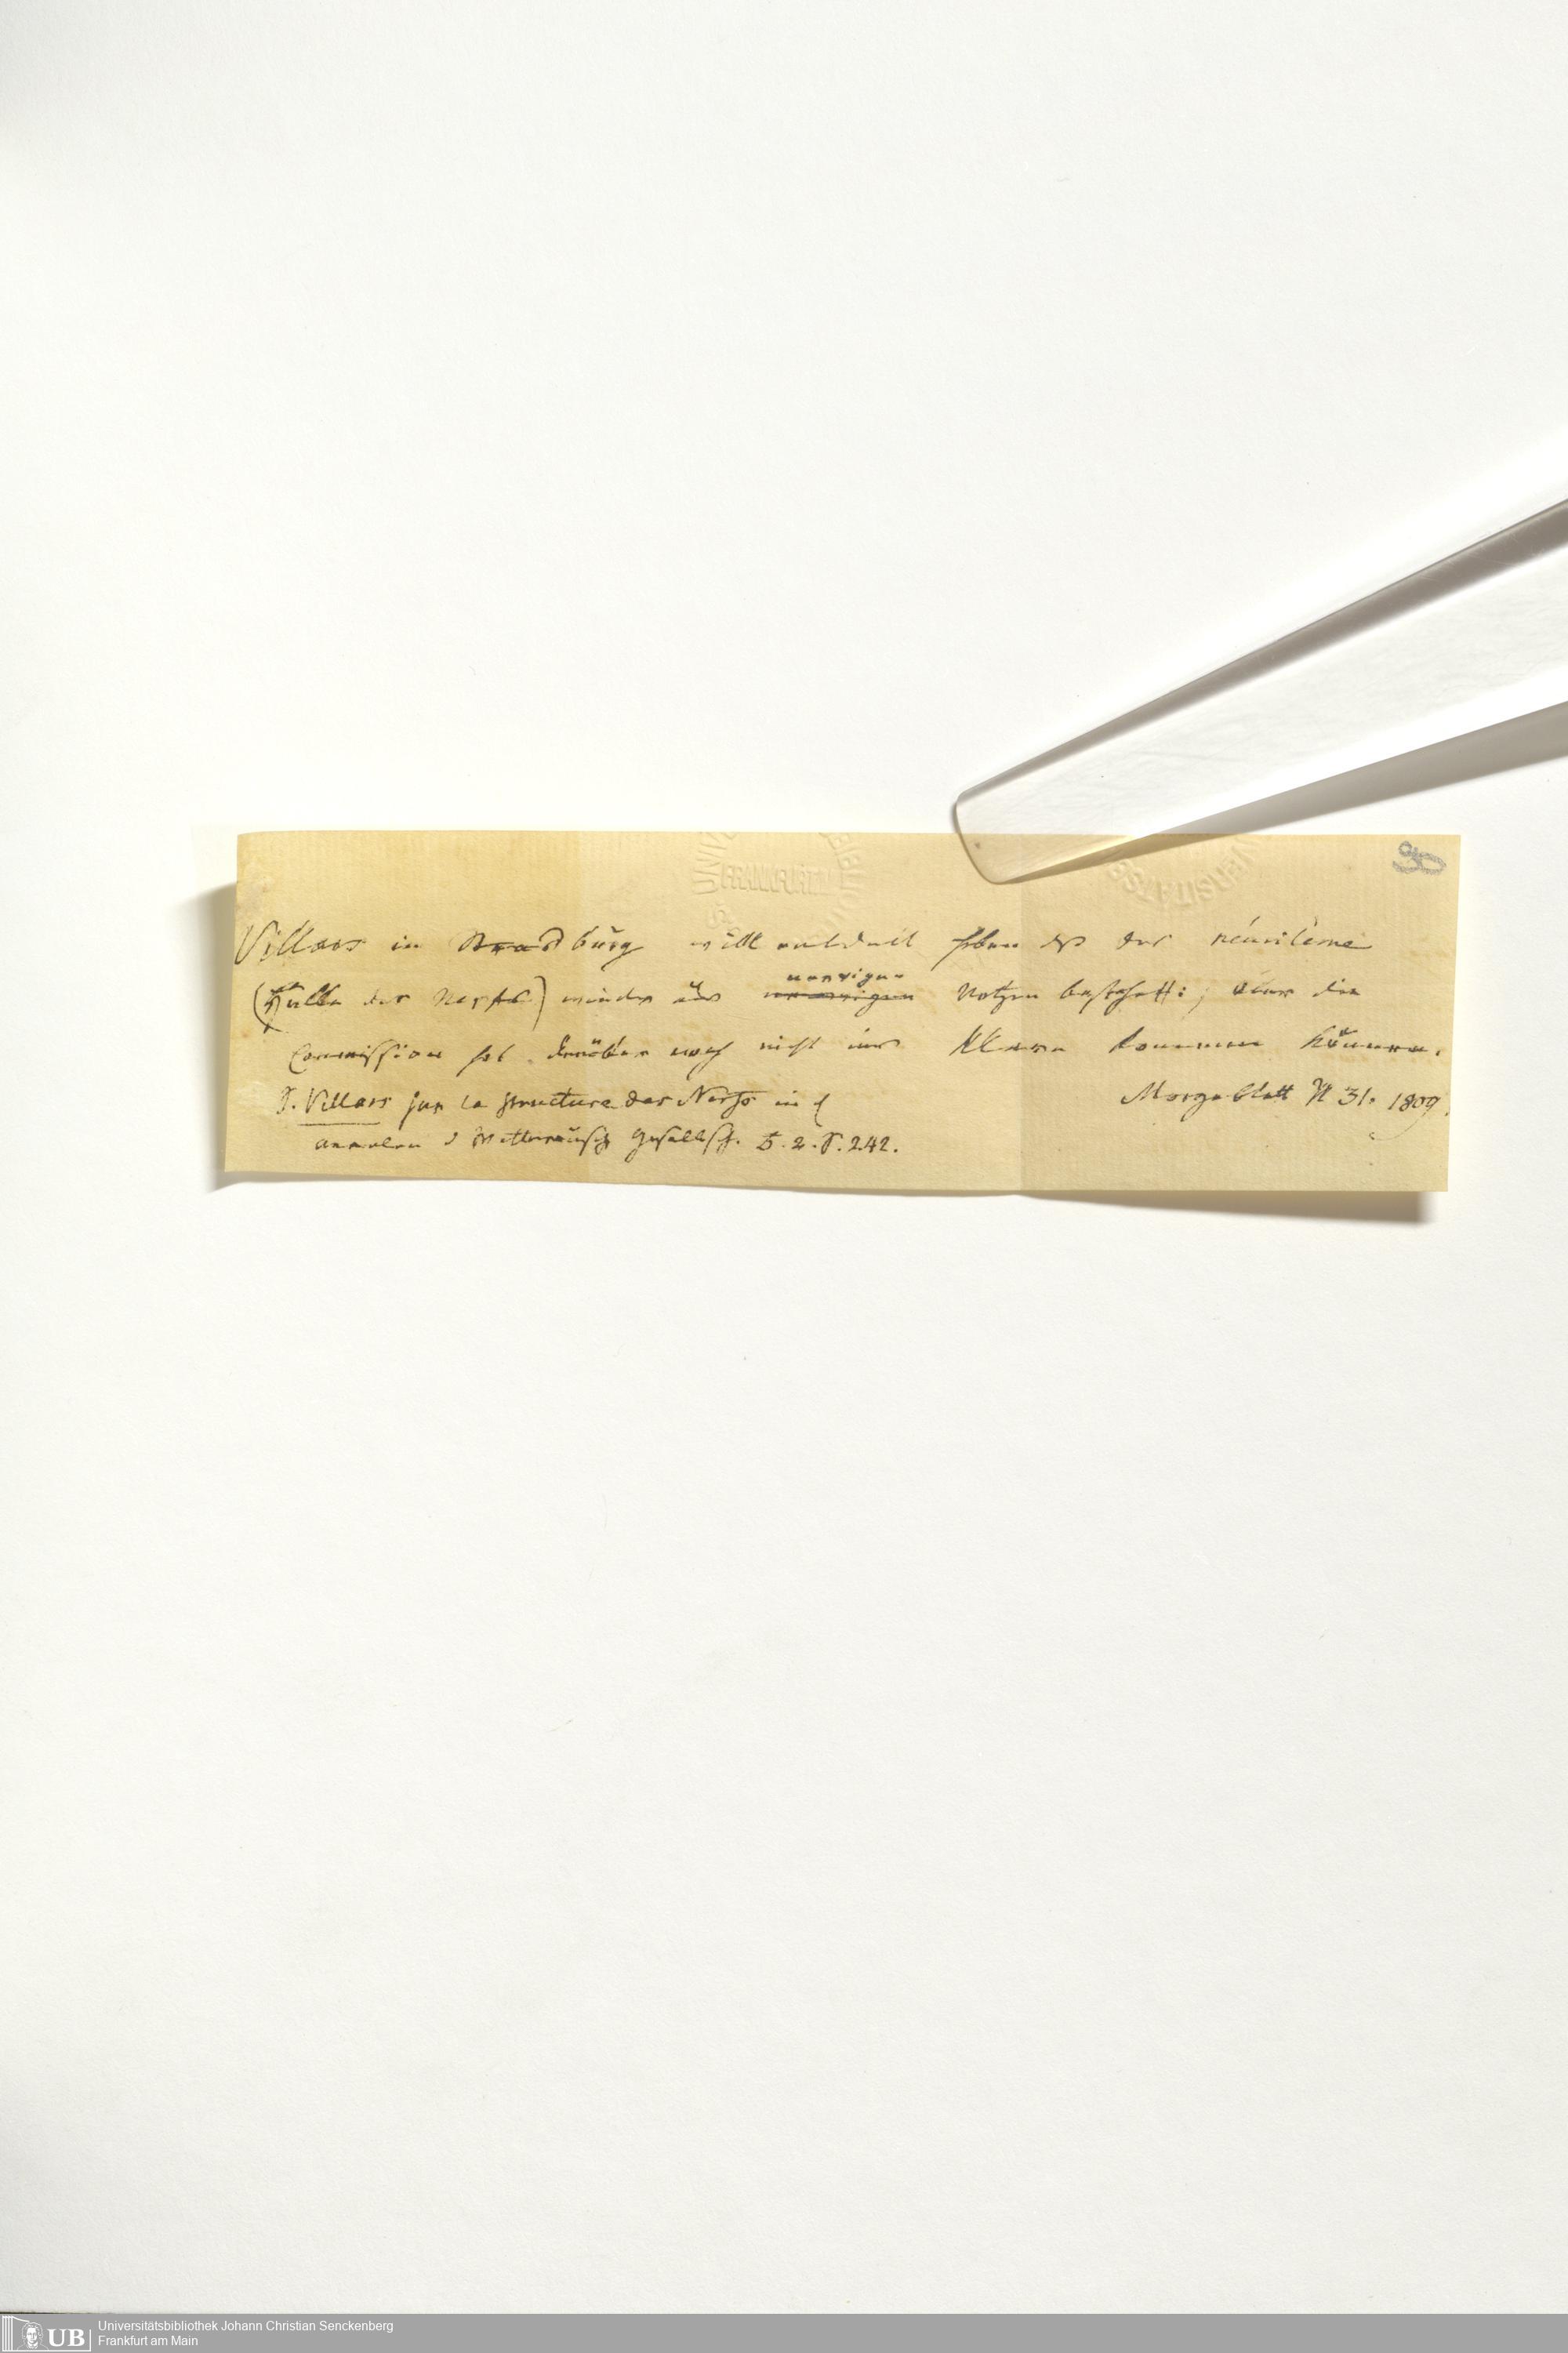 30
Villars in Strasburg will entdeckt haben daß das névrilème
nervigen
(Hülle der Nerven) wieder aus Notzen besteht; aber die
Commission hat darüber noch nicht ins Klare kommen können.
Morgeblatt N 31. 1809.
S. Villars sur la structure des Nerfs in d
Annalen d Wetterauisch Gesellsch. B. 2. S. 242.
FRANKFURT
Universitätsbibliothek Johann Christian Senckenberg
UB Frankfurt am Main